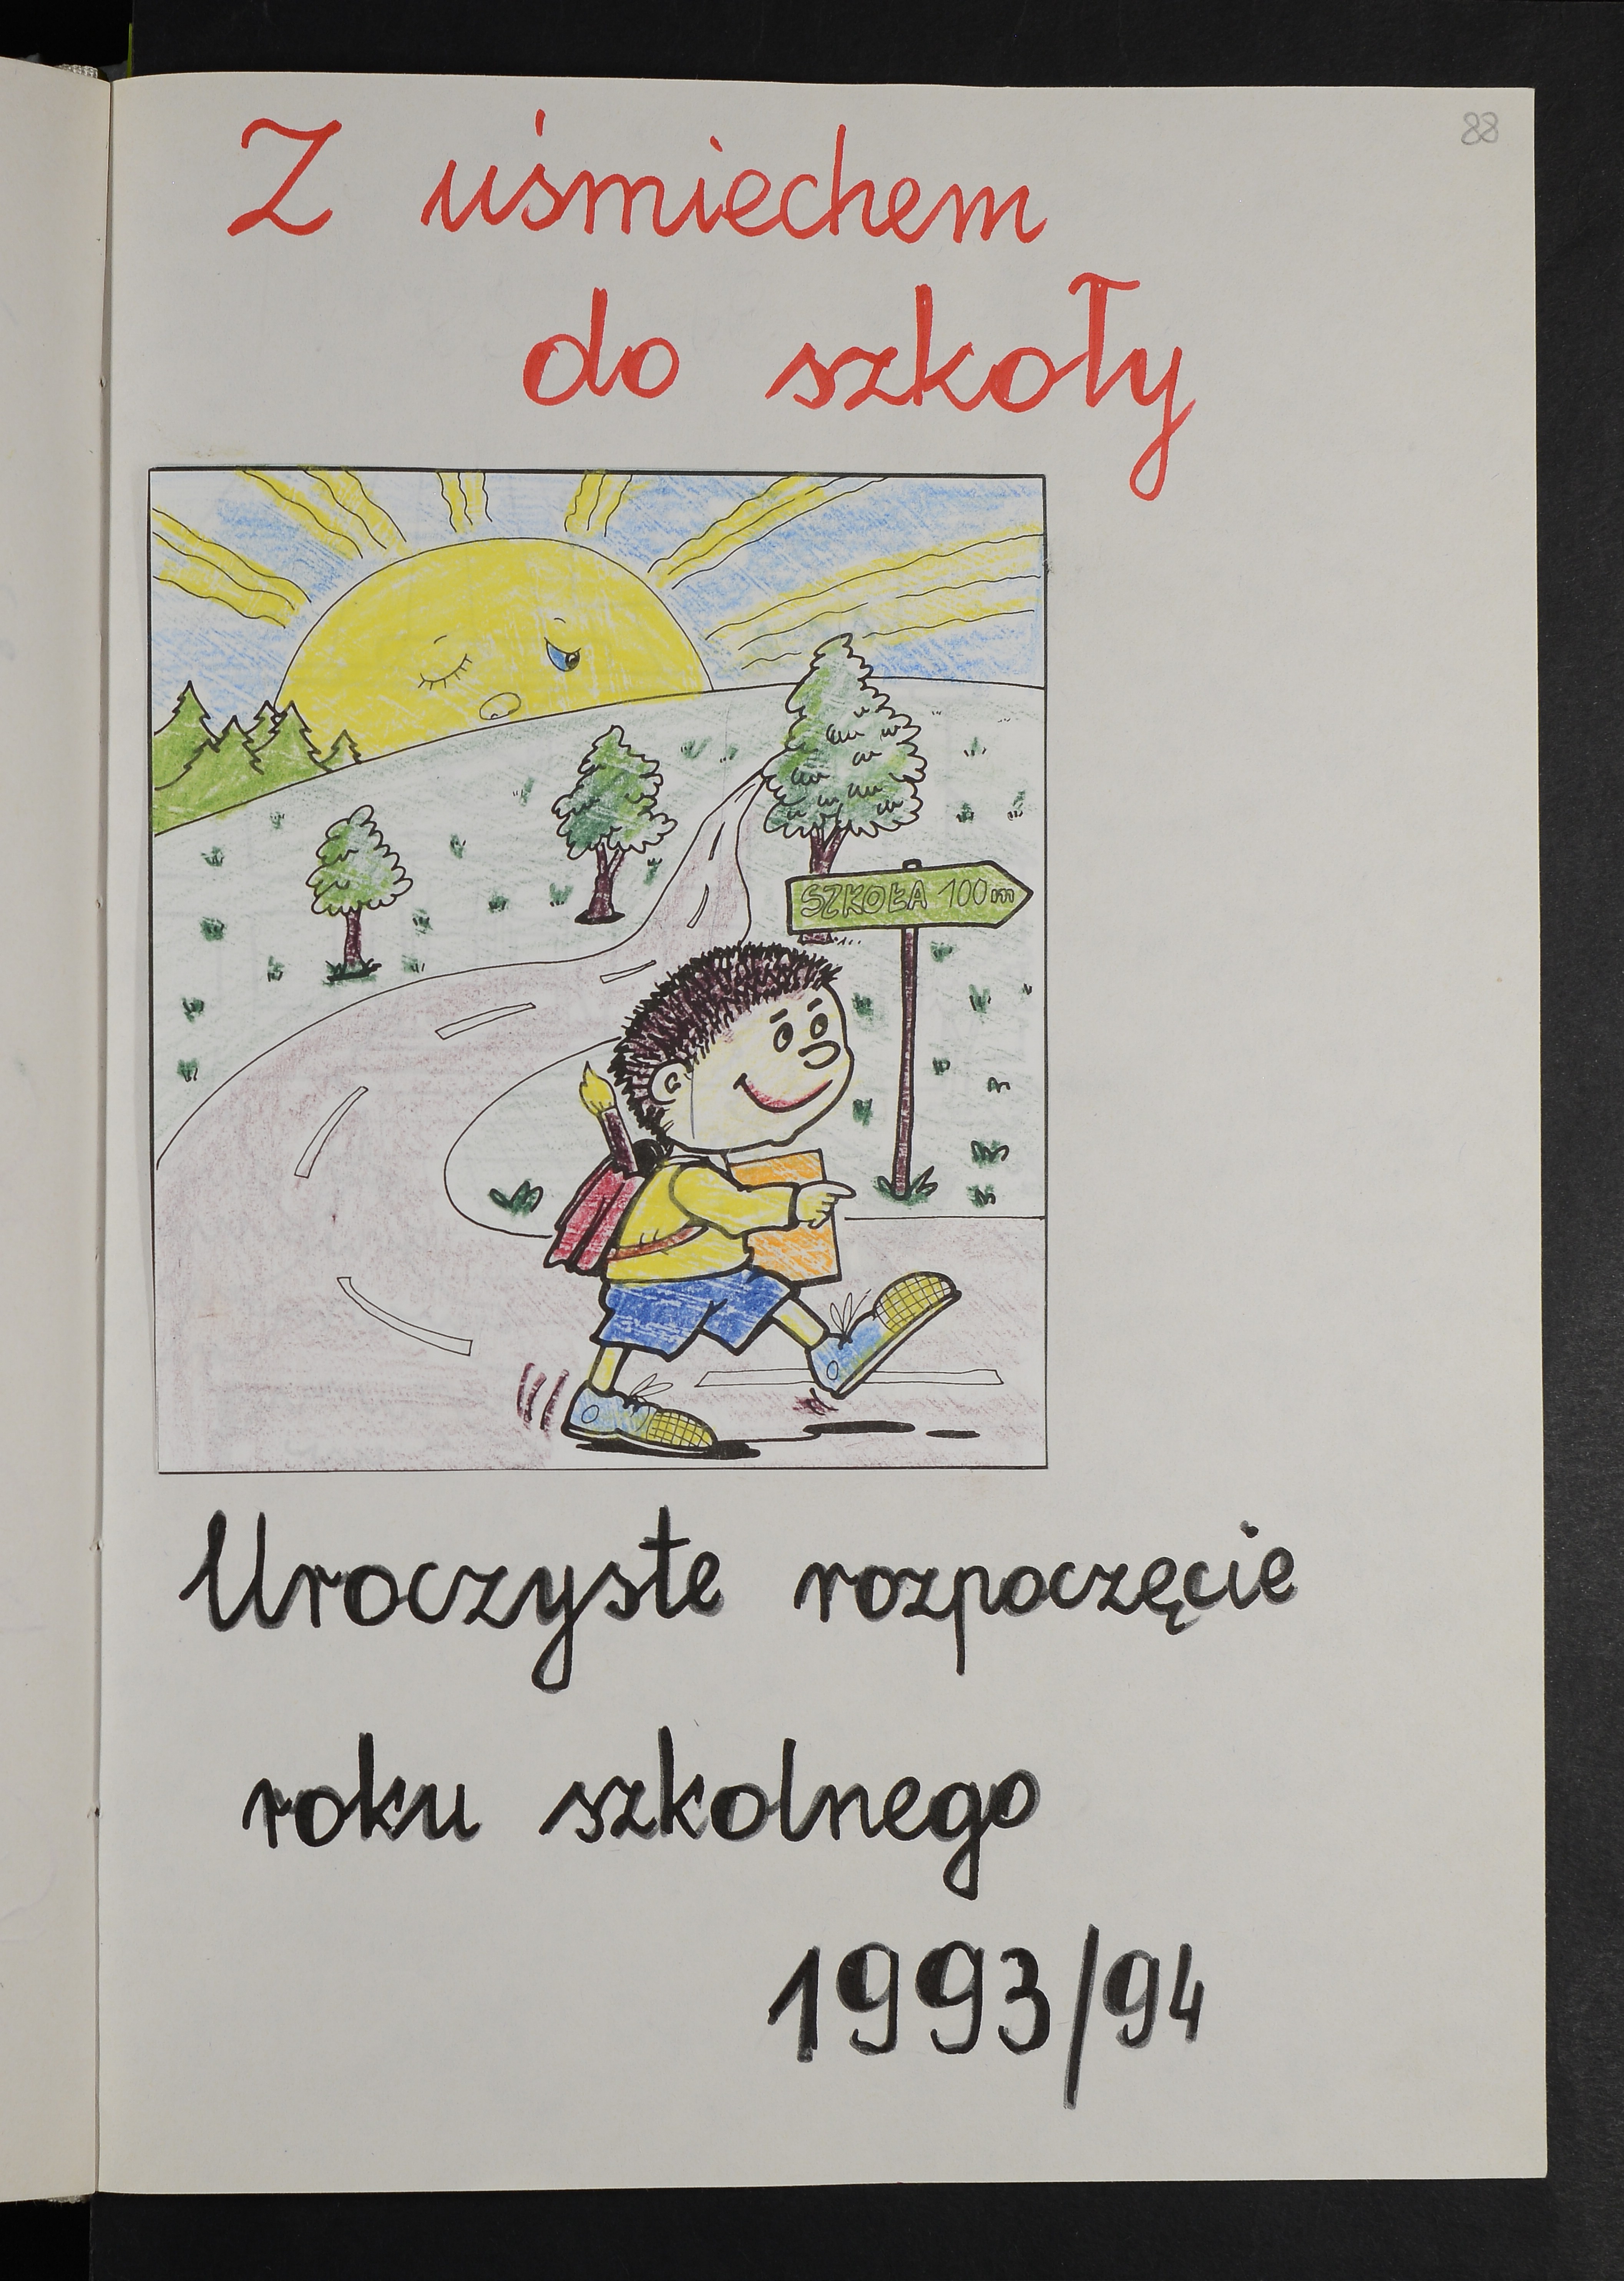 88
Z uśmiechem
do szkoły
SZKOŁA 100m
Uroczyste rozpoczęcie
roku szkolnego
1993/94